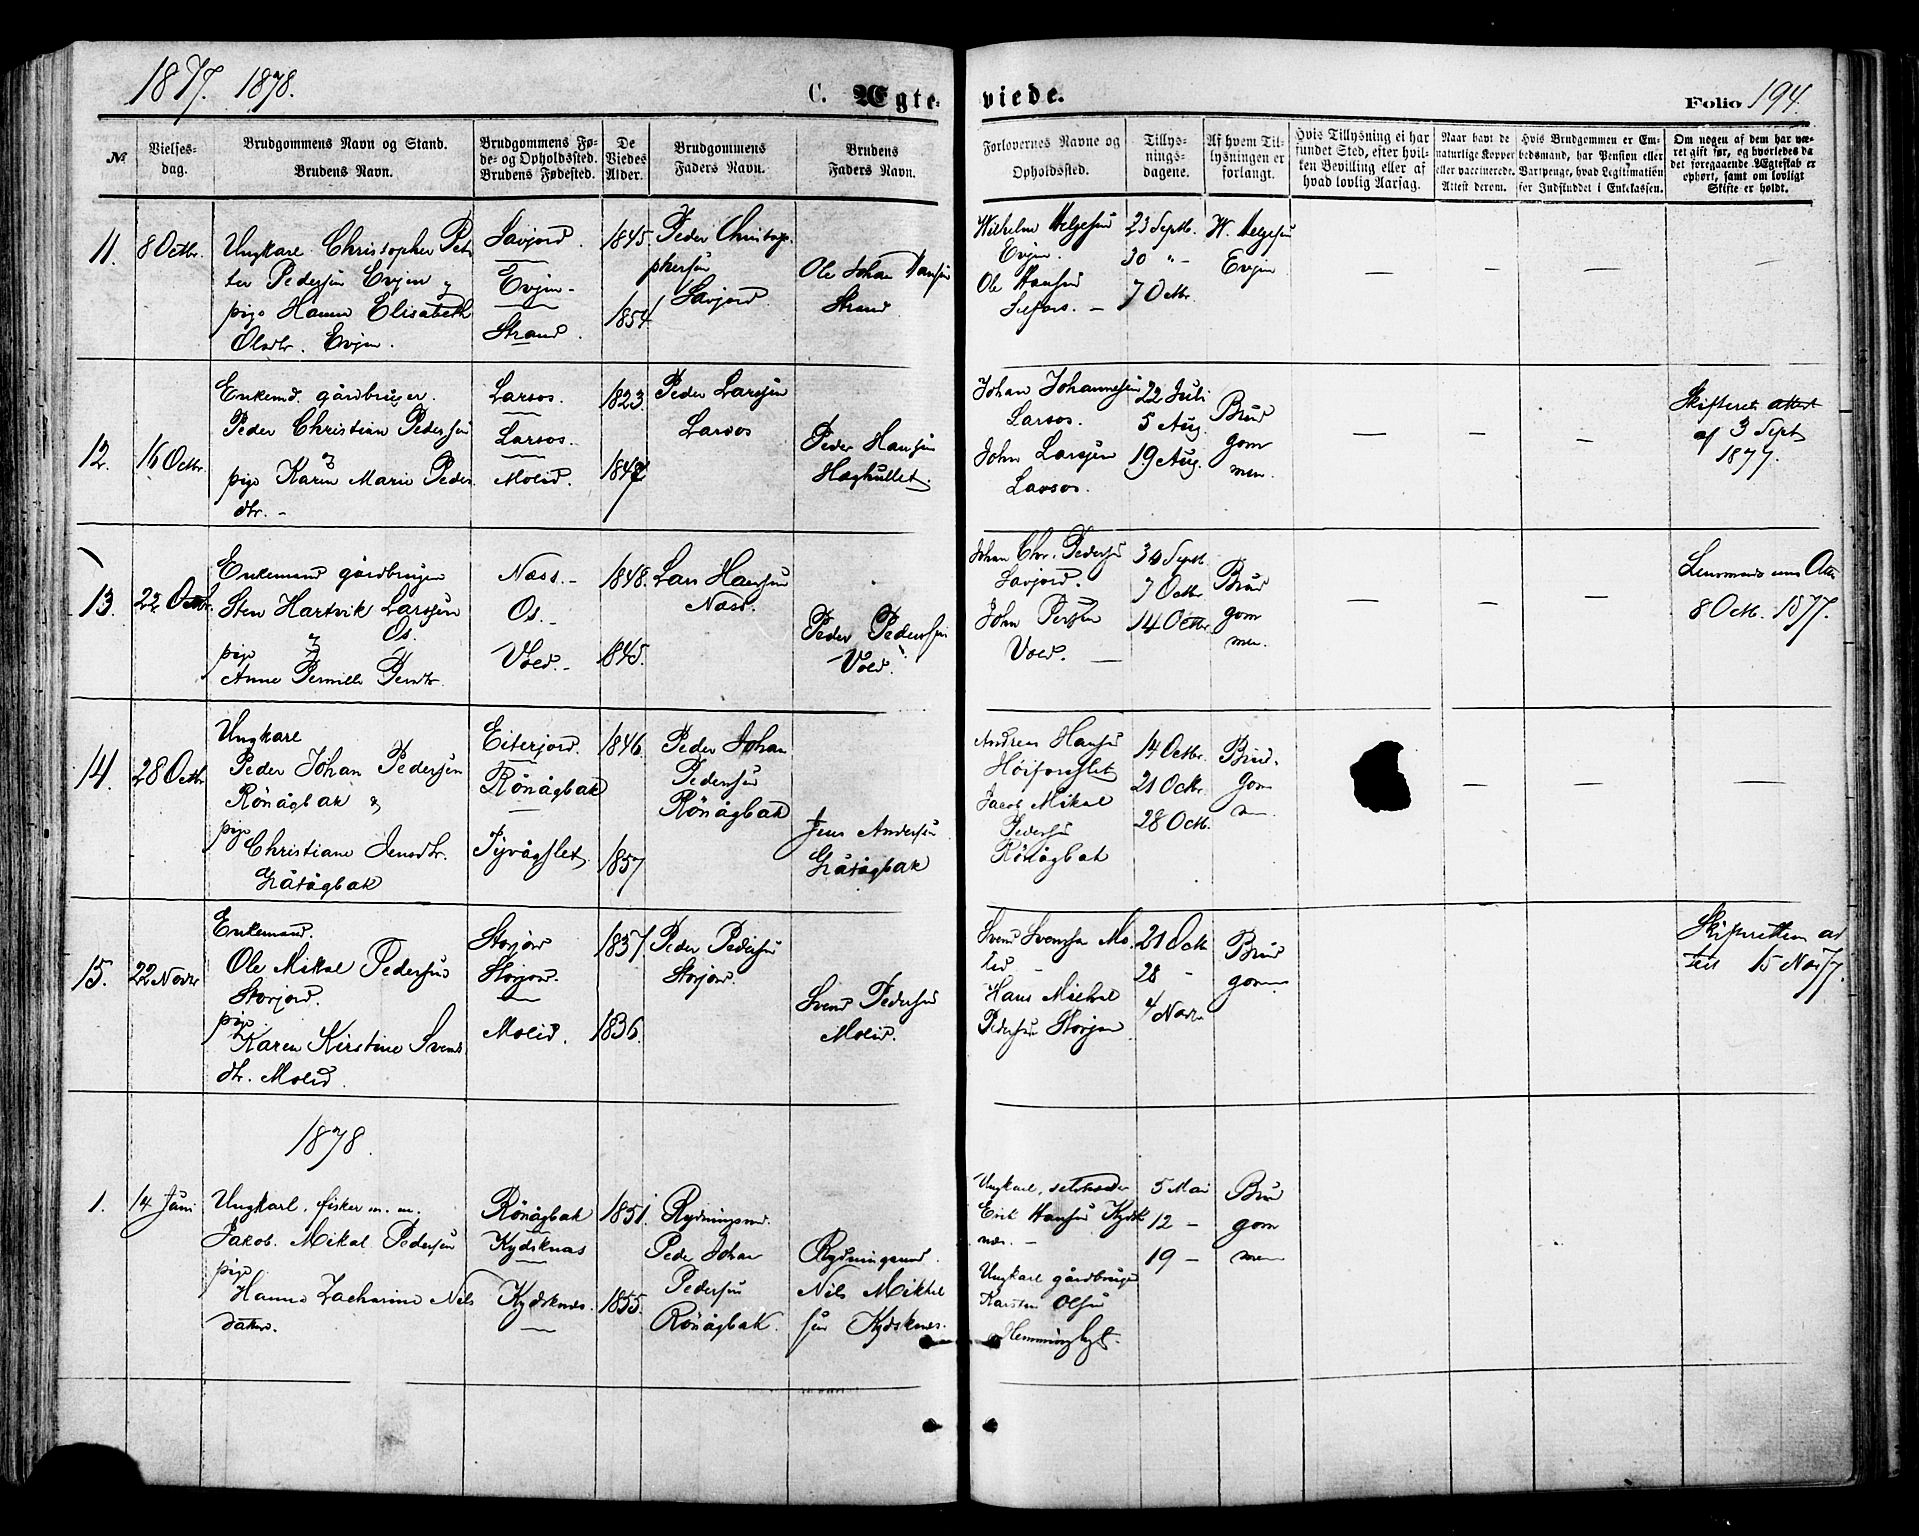 1877. 1878.
C. Ægte-
viede.
Folio 194.
№
Vielses-
dag.
Brudgommens Navn og Stand.
Brudens Navn.
Brudgommens Fø-
de- og Opholdssted.
Brudens Fødested.
De
Viedes
Alder.
Brudgommens
Faders Navn.
Brudens
Faders Navn.
Forlovernes Navne og
Opholdssted.
Tillys-
nings-
dagene.
Af hvem Til-
lysningen er
forlangt.
Hvis Tillysning ei har
fundet Sted, efter hvil-
ken Bevilling eller af
hvad lovlig Aarsag.
Naar havt de
naturlige Kopper
eller vaccinerede.
Attest derom.
Hvis Brudgommen er Em-
bedsmand, har Pension eller
Vartpenge, hvad Legitimation
for Indskuddet i Enkekassen.
Om nogen af dem har væ-
ret gift før, og hvorledes da
det foregaaende Ægteskab er
ophørt, samt om lovligt
Skifte er holdt.
11.
8 Octbr.
Ungkarl Christopher Pet-
ter Pedersen Evjen &
pige Hanna Elisabeth
Olsdtr. Evjen.
Savjord.
Evjen-
Strand.
1845.
1854
Peder Christop-
phersen
Savjord
Ole Johan Hansen
Strand
Wilhelm Helgesen
Evjen.
Ole Hansen
23 Septb.
30 " -
7 Octbr.
W. Helgesen
Evjen
— — — —
12.
16 Octbr.
Enkemd. gårdbruger.
Peder Christian Pedersen
&
pige Karen Marie Peders
dtr. -
Larsos.
Larsos.
Molid.
1823.
1847
Peder Larssen
Larsos
Peder Hansen
Hæghullet.
Johan Johannesen
Larsos.
John Larssen
Larsos.
22 Juli
5 Aug.
19 Aug.
Brud
gom
men.
— — —
Skifteret. attest
af 3 Sept
1877.
13.
22 Octb.
Enkemand gårdbruger
Sten Hartvik Larssen
& Os.
pige
Anne Pernille Persdtr.
Næss.-
Os.-
Vold.-
1848.
1845.
Lars Hanssen
Næss.
Peder Pedersen
Vold.
Johan Chr. Pedersen
Savjord.
John Persen
Vold. —
30 Septb.
7 Octbr
14 Octbr.
Brud
gom
men.
— — —
Lensmandens Att.
8 Octb. 1877.
14.
28 Octbr
Ungkare
Peder Johan Pedersen
Rönågbak &
pige
Christiane Jensdtr.
Gråtågbak
Eiterjord.
Rönågbak
Tyvågflet.
1846.
1857
Peder Johan
Pedersen
Rönågbak
Jens Andersen
Gråtågbak
Andreas Hansen
Höiforsflet
Jacob Mikal
Pedersen
Rönågbak
14 Octbr.
21 Octbr.
28 Octb.
Brud-
gom
m.
— — —
15.
22 Novbr
Enkemand.
Ole Mikal Pedersen
Storjord.
pige
Karen Kirstine Svends
dtr. Molid.
Storjord
Storjord.
Molid.
1837.
1836.
Peder Pedersen
Storjord.
Svend Pedersen
Molid.
Svend Svensen Mo-
lid -
Hans Michal
Pedersen Storjord
21 Octb
28 -
4 Novbr
Brud
gom
Skifteretten at
test 15 Nov 77.
1878.
1.
14 Juni
Ungkarl, fisker m. m.
Jakob Mikal Pedersen
pige
Hanna Zacharine Nils
datter.
Rönågbak
Kydsknæs
Kydsknes.
1851.
1855.
Rydningsmd.
Peder Johan
Pedersen
Rönågbak.
Rydningsmd.
Nils Mikkel
sen Kydsknes.
Ungkarl,
Erik Hansen Kydsk
næs. -
Ungkarl gårdbruger
Karsten Olsen
Hemminghyt.
5 Mai
12 -
19 -
Brud
gom
men